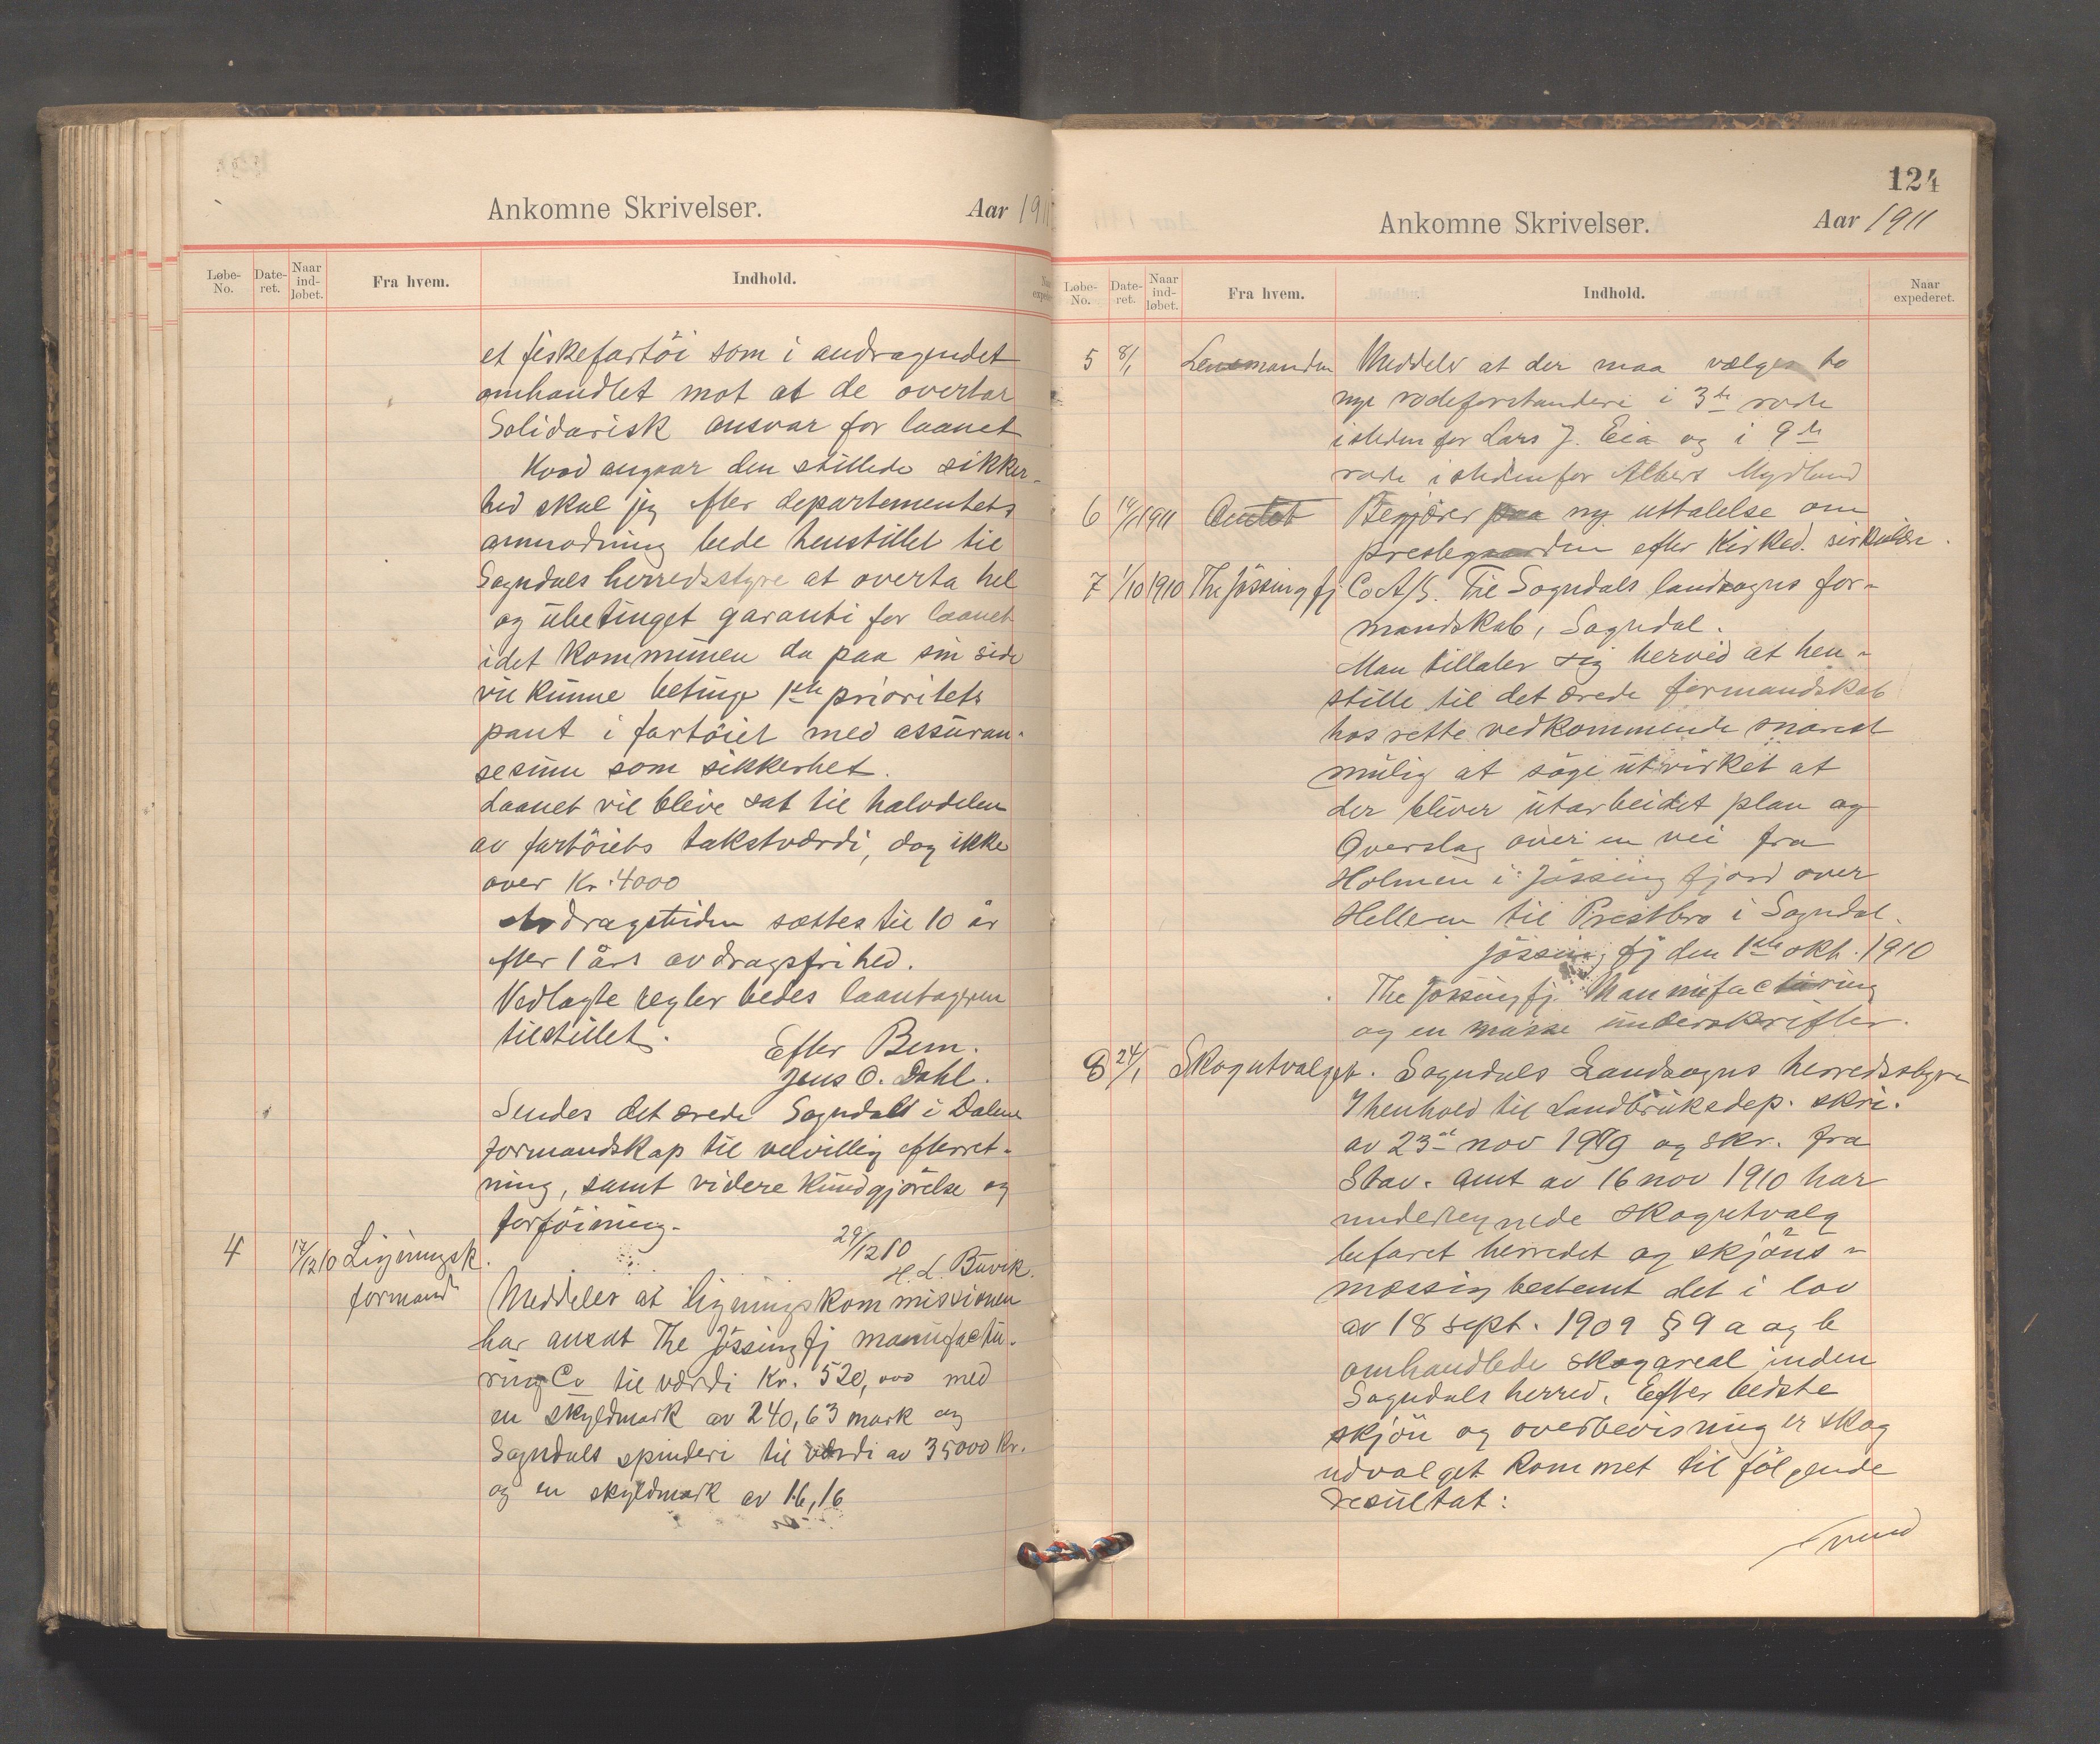 Ankomne Skrivelser. Aar 1911
Løbe-No. Date-ret. Naar ind-løbet. Fra hvem. Indhold.
et fiskefartöi som i andragendet
omhandlet mot at de overtar
Solidarisk ansvar for laanet
Hvad angaar den stillede sikker-
hed skal jeg efter departementets
anmodning bede henstillet til
Sogndals herredsstyre at overta hel
og ubetinget garanti for laanet
idet kommunen da paa sin side
vil kunne betinge 1ste prioritets
pant i fartöiet med assuran-
sesum som sikkerhet.
Laanet vil blive sat til halvdelen
av fartöiets takstværdi, dog ikke
over Kr. 4000
Avdragstiden sættes til 10 år
efter 1 års avdragsfrihed.
Vedlagte regler bedes laantageren
tilstillet.
Efter Bem.
Jens O. Dahl.
Sendes det ærede Sogndal i Dalene
formandskap til velvillig efterret-
ning, samt videre kundgjörelse og
forföining.
29/12 10
H. L. Buvik.
4 17/12 10 Ligningsk.
formand
Meddeler at ligningskommissionen
har ansat The Jössingfj manufactu-
ring Co til værdi Kr. 520,000 med
en skyldmark av 240,63 mark og
Sogndals spinderi til værdi av 35000 Kr.
og en skyldmark av 16,16
124
Ankomne Skrivelser. Aar 1911
Løbe-No. Date-ret. Naar ind-løbet. Fra hvem. Indhold. Naar expederet.
5 8/1 Lensmanden Meddeler at der maa vælges to
nye rodeforstandere i 3de rode
istedenfor Lars J. Eia og i 9de
rode istedenfor Albert Mydland
6 1911 Amtet Begjærer paa ny uttalelse om
prestegaarden efter Kirked. sirkulære.
7 1/10 1910 The Jössingfj Co A/S. Til Sogndals landsogns for-
mandskab, Sogndal.
Man tillater sig herved at hen-
stille til det ærede formandskab
hos rette vedkommende snarest
mulig at söge utvirket at
der bliver utarbeidet plan og
Overslag over en vei fra
Holmen i Jössingfjord over
Helleren til Prestbro i Sogndal.
Jössingfj den 1ste okt. 1910
The Jössingfj. Mannufacturing
og en masse underskrifter.
8 24/1 Skogutvalget. Sogndals Landsogns herredsstyre
I henhold til Landbruksdep. skri.
av 23de nov 1909 og skr. fra
Stav. amt av 16 nov 1910 har
undertegnede skogutvalg
befaret herredet og skjöns-
mæssig bestemt det i lov
av 18 sept. 1909 § 9 a og b
omhandlede skogareal inden
Sogndals herred. Efter bedste
skjön og overbevisning er skog
udvalget kommet til fölgende
resultat: